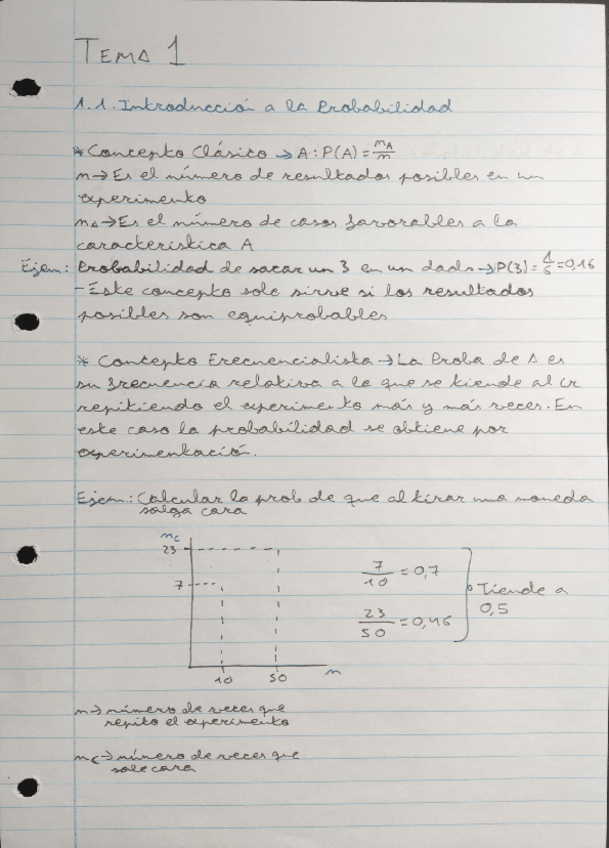 TEMA 1
1.1. Introducción a la Probabilidad
* Concepto Clásico → A: P(A) = nA/n
n → Es el número de resultados posibles en un
experimento
nA → Es el número de casos favorables a la
característica A
Ejem: Probabilidad de sacar un 3 en un dado → P(3) = 1/6 = 0,16
- Este concepto solo sirve si los resultados
posibles son equiprobables
* Concepto Frecuencialista → La Proba de A es
su frecuencia relativa a la que se tiende al ir
repitiendo el experimento más y más veces. En
este caso la probabilidad se obtiene por
experimentación.
Ejem: Calcular la prob de que al tirar una moneda
salga cara
nc
23
7
10 50 n
7/10 = 0,7
23/50 = 0,46
Tiende a
0,5
n → número de veces que
repito el experimento
nc → número de veces que
sale cara